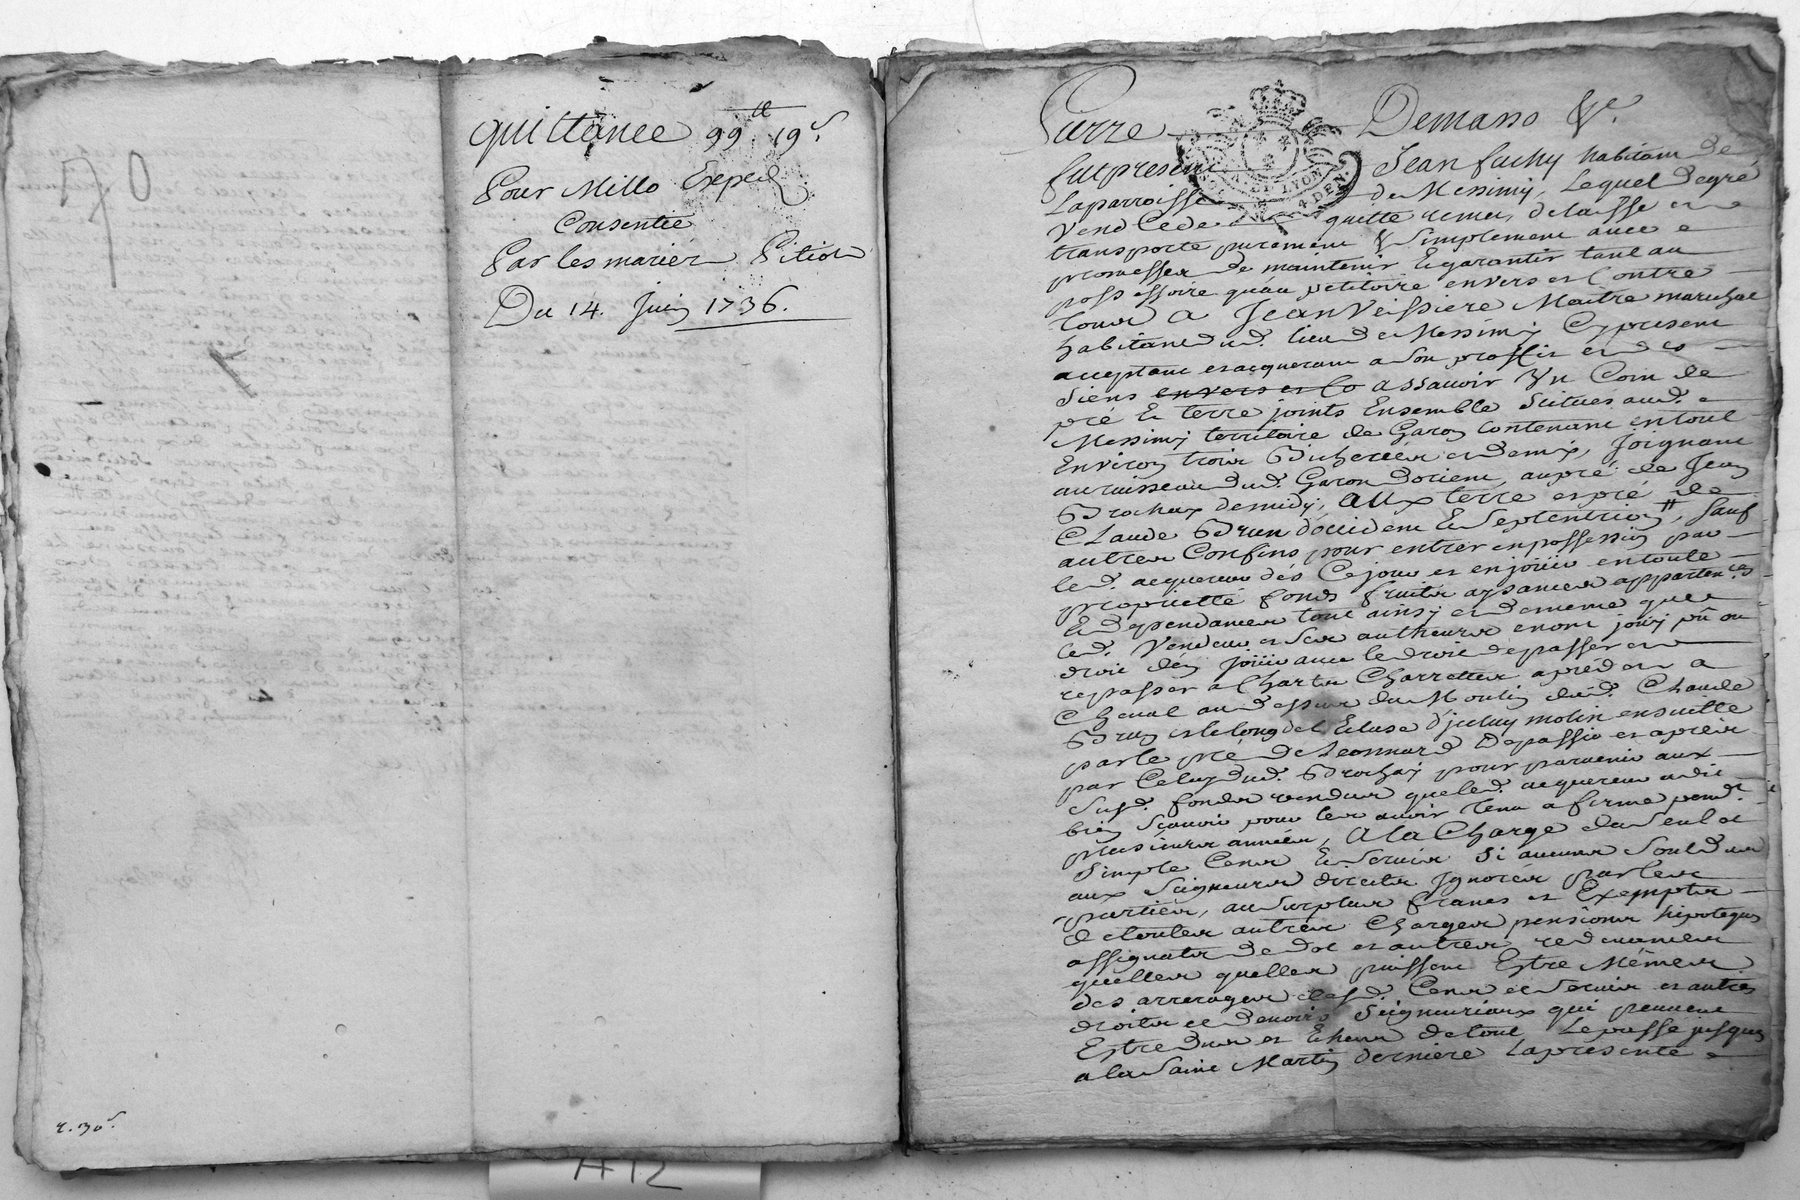 70
quittance 99tt 19s
Pour Millo Exped
Consentie
Par les mariés Pitiot
Du 14. Juin 1736.
2. 30s.
A12
Pierre Demasso &c.
SO ET LYON 4 DEN.
fut present Jean fachy habitant de
La parroisse de Messimy, Lequel de gré
vend Cede quitte remet, delaisse et
transporte purement & simplement avec
promesse de maintenir & garantir tant au
possessoire quau petitoire envers et Contre
tous A Jean Veissiere Maitre marechal
habitant dud. lieu de Messimy Cy present
acceptant et acquerant a son proffit et des
siens envers et Co assavoir Un Coin de
pré & terre joints Ensemble Scitués aud.
Messimy territoire de Garon Contenant en tout
Environ trois Bicherees et demy, Joignant
au ruisseau dud. Garon dorient, au pré de Jean
Brochay demidy, aux terre et pré de
Claude Brun doccident & Septentrion, sauf
autres Confins pour entrer en possession par
led. acquereur dés Ce jour et en jouir en toute
proprietté fonds fruits aysances appartences
& dependances tout ainsy et de meme que
led. Vendeur et ses autheurs en ont jouy pû ou
droit d'en jouir avec le droit de passer et
repasser a Chars Charrettes a pied et a
Cheval au dessus du Moulin dud. Claude
Brun et le long de L'Ecluse d'iceluy molin ensuitte
par le pré de Leonnard Depassio et aprés
par Celuy dud. Brochay pour parvenir aux
susd. fonds vendus que led. acquereur a dit
bien scavoir pour les avoir tenu a ferme pend.t
plusieurs années, A la Charge du seul et
simple Cens & Servis si aucuns sont dus
aux Seigneurs directs Ignorés par les
parties, au surplus francs et Exempts
de toutes autres Charges pensions hipoteques
assignats de dot et autres redevances
quelles quelles puissent Estre Mêmes
des arrerages desd. Cens et Servis et autres
droits et devoirs Seigneuriaux qui peuvent
Estre dus et Echeus de tout Le passé jusques
a la Saint Martin derniere La presente